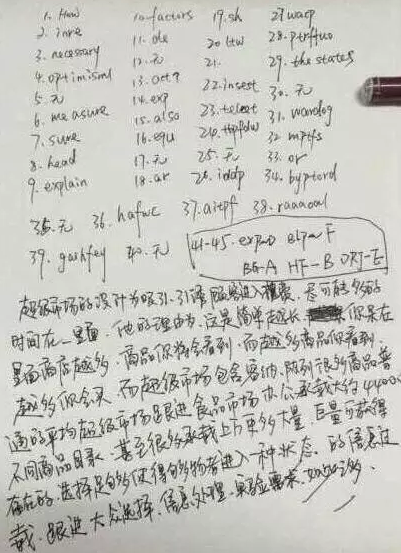 1. How 10. factors 19. sh 27. warp
2. inre 11. de 20. ttw 28. ptrftuo
3. necessary 12. 无 21. 29. the states
4. optimisml 13. act? 22. insest 30. 无
5. 无 14. exp 23. teleet 31. wandog
6. measure 15. also 24. 32. mptfs
7. sure 16. equ 25. 无 33. or
8. head 17. 无 26. iddp 34. byptord
9. explain 18. ar
35. 无 36. hafwc 37. aitpf 38. raaaoal
39. gashfey 40. 无 41-45. F
BG-A HF-B DRJ-E
超级市场的设计为吸引.引诱顾客进入
时间在一里面. 他的理由为. 这是简单越长 你呆在
里面商店越多. 商品你将会看到. 而越多商品你看到.
越多你会买. 而超级市场包含容纳.陈列很多商品普
通的平均超级市场 食品市场 承载大约44000
不同商品目录. 甚至很多承载上万更多大量. 巨量可获得
存在的. 选择足够多使得购物者进入一种状态. 的信息过
载. 跟进大众选择. 信息处理.